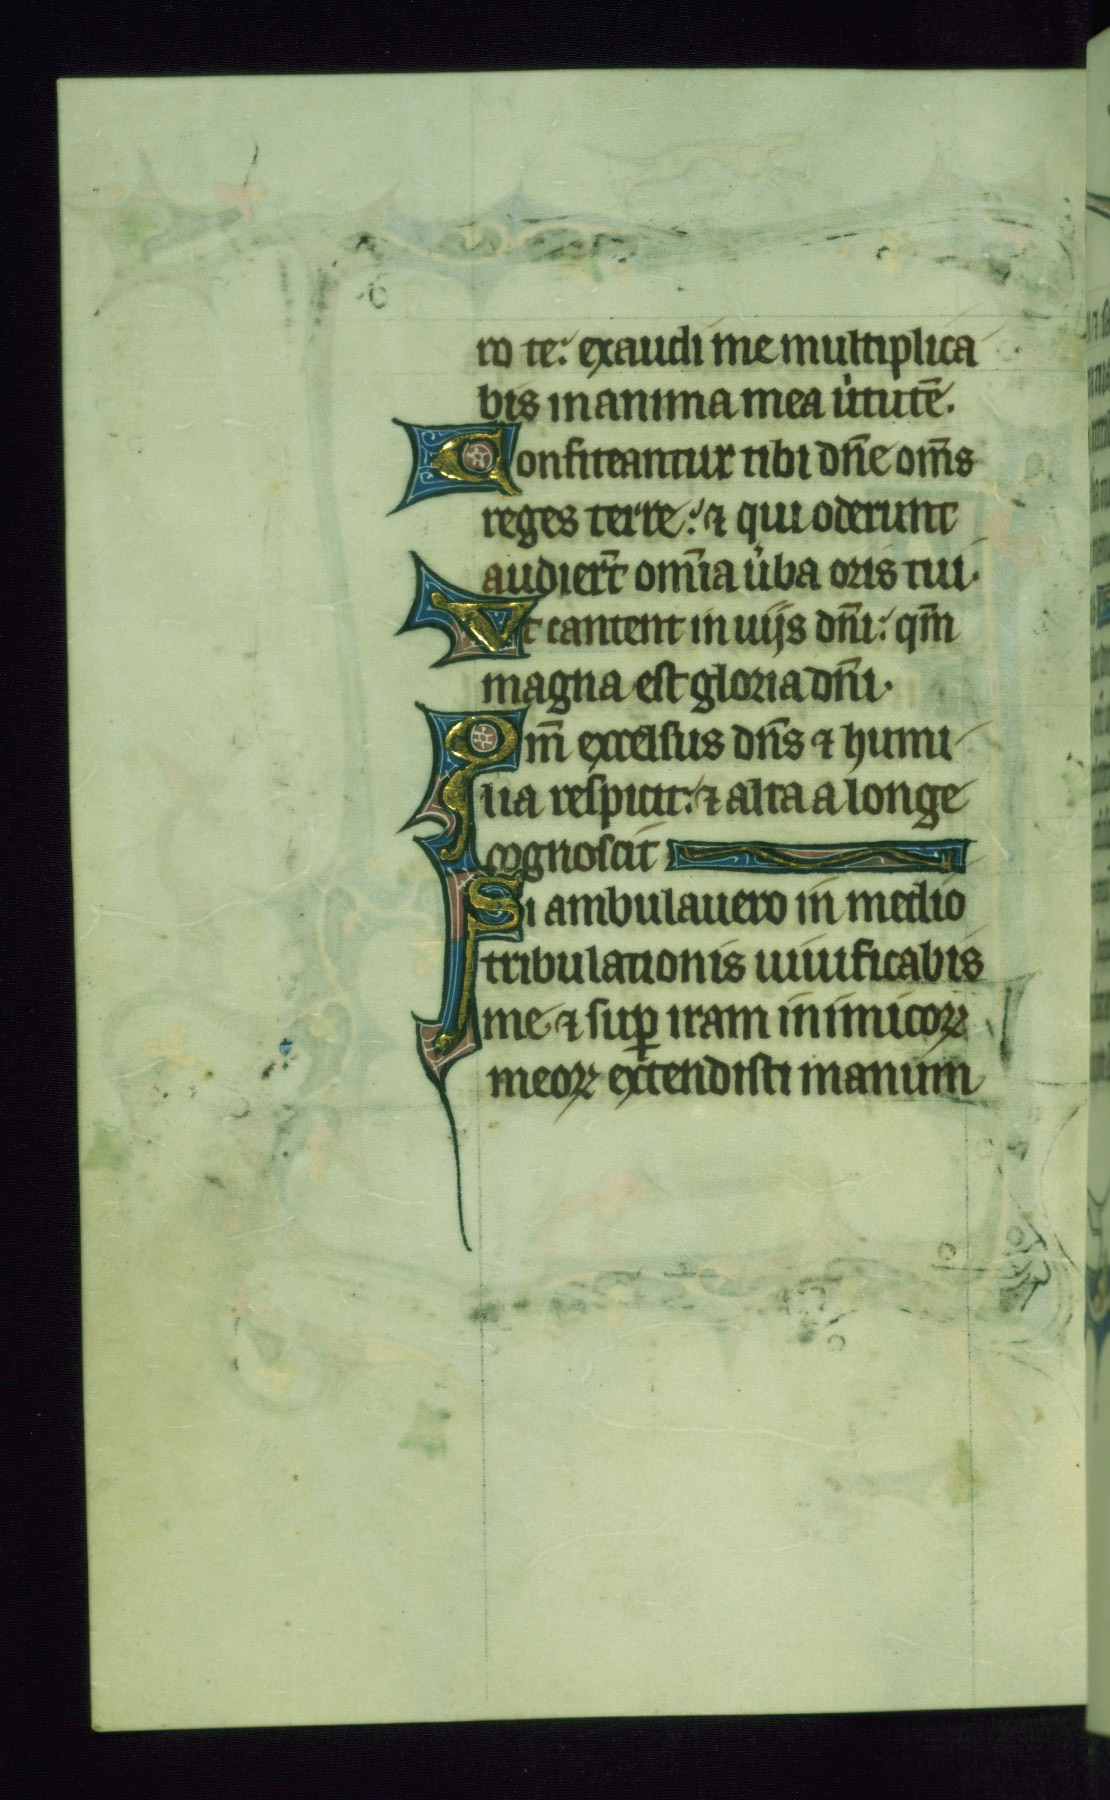 ro te: exaudi me multiplica
bis in anima mea u̾tutē.
Confiteantur tibi dn̄e om̄s
reges terre: ⁊ qui oderunt
audier̄t om̄ia u̾ba oris tui.
Vt cantent in uijs dn̄i: qm̄
magna est gloria dn̄i.
Qm̄ excelsus dn̄s ⁊ humi
lia respicit: ⁊ alta a longe
cognoscit
Si ambulauero in medio
tribulationis uiuificabis
me ⁊ suꝑ iram inimicoꝝ
meoꝝ extendisti manum